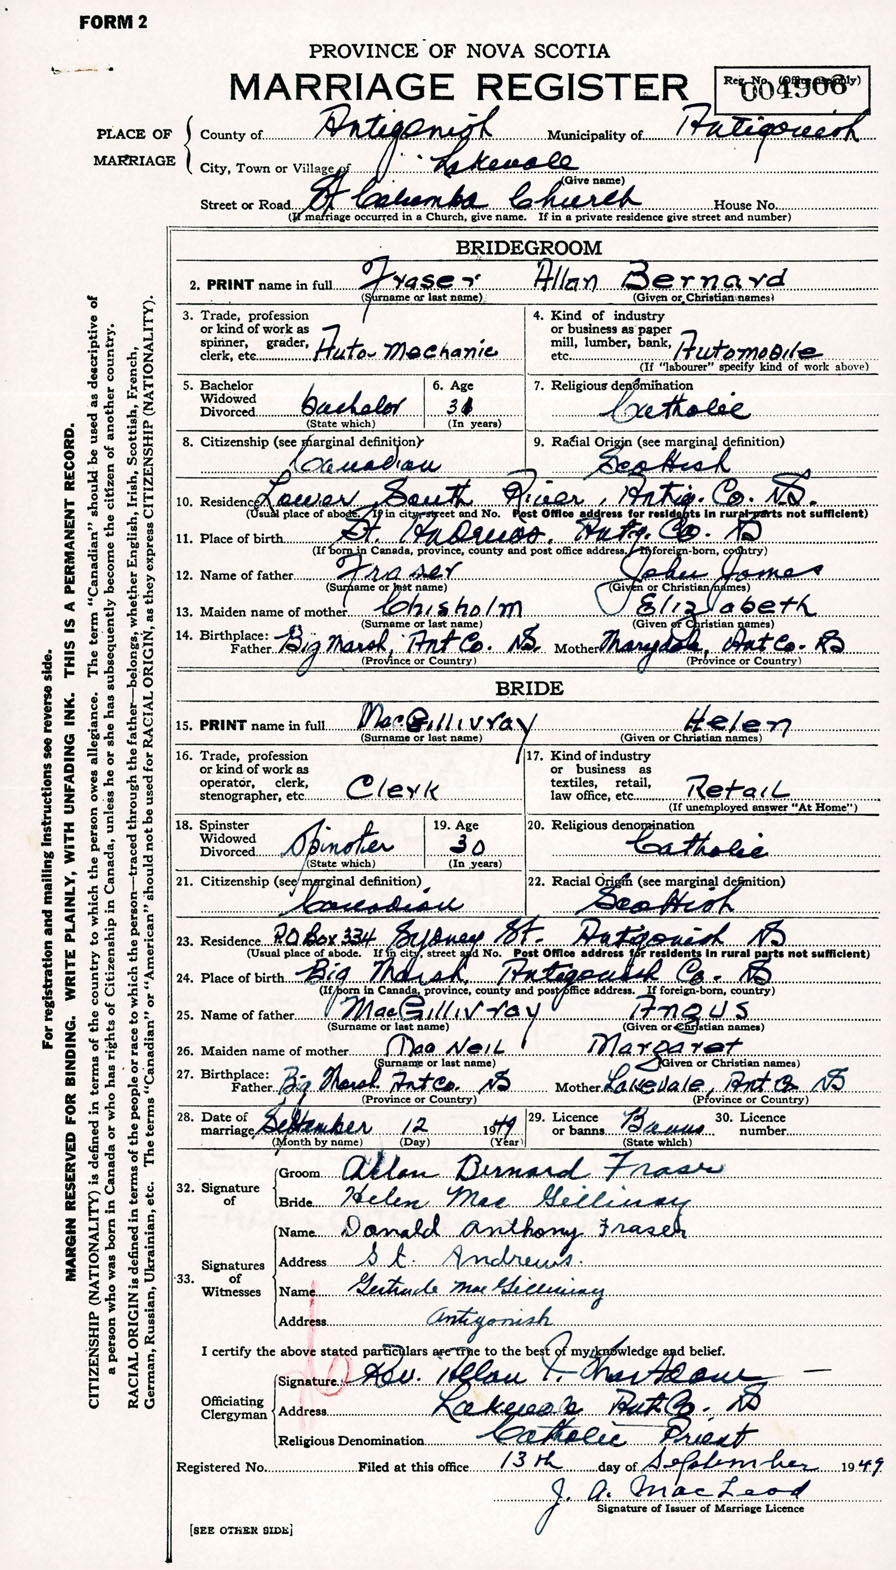 FORM 2
PROVINCE OF NOVA SCOTIA
MARRIAGE REGISTER
Reg. No. (Office use only)
004906
PLACE OF MARRIAGE
County of Antigonish Municipality of Antigonish
City, Town or Village of Lakevale
(Give name)
Street or Road St Columba Church House No.
(If marriage occurred in a Church, give name. If in a private residence give street and number)
BRIDEGROOM
2. PRINT name in full Fraser Allan Bernard
(Surname or last name) (Given or Christian names)
3. Trade, profession or kind of work as spinner, grader, clerk, etc. Auto-Mechanic
4. Kind of industry or business as paper mill, lumber, bank, etc. Automobile
(If "labourer" specify kind of work above)
5. Bachelor Widowed Divorced bachelor
(State which)
6. Age 31
(In years)
7. Religious denomination Catholic
8. Citizenship (see marginal definition) Canadian
9. Racial Origin (see marginal definition) Scottish
10. Residence Lower South River, Antig. Co. N.S.
(Usual place of abode. If in city, street and No. Post Office address for residents in rural parts not sufficient)
11. Place of birth St. Andrews. Antg. Co. NS
(If born in Canada, province, county and post office address. If foreign-born, country)
12. Name of father Fraser John James
(Surname or last name) (Given or Christian names)
13. Maiden name of mother Chisholm Elizabeth
(Surname or last name) (Given or Christian names)
14. Birthplace: Father Big Marsh, Ant Co. NS. Mother Marydale, Ant Co. NS
(Province or Country) (Province or Country)
BRIDE
15. PRINT name in full MacGillivray Helen
(Surname or last name) (Given or Christian names)
16. Trade, profession or kind of work as operator, clerk, stenographer, etc. Clerk
17. Kind of industry or business as textiles, retail, law office, etc. Retail
(If unemployed answer "At Home")
18. Spinster Widowed Divorced Spinster
(State which)
19. Age 30
(In years)
20. Religious denomination Catholic
21. Citizenship (see marginal definition) Canadian
22. Racial Origin (see marginal definition) Scottish
23. Residence PO Box 334 Sydney St. Antigonish NS
(Usual place of abode. If in city, street and No. Post Office address for residents in rural parts not sufficient)
24. Place of birth Big Marsh, Antigonish Co. NS
(If born in Canada, province, county and post office address. If foreign-born, country)
25. Name of father MacGillivray Angus
(Surname or last name) (Given or Christian names)
26. Maiden name of mother MacNeil Margaret
(Surname or last name) (Given or Christian names)
27. Birthplace: Father Big Marsh Ant Co. NS Mother Lakevale, Ant Co NS
(Province or Country) (Province or Country)
28. Date of marriage September 12 1949
(Month by name) (Day) (Year)
29. Licence or banns Banns
(State which)
30. Licence number
32. Signature of
Groom Allan Bernard Fraser
Bride Helen MacGillivray
33. Signatures of Witnesses
Name Donald Anthony Fraser
Address St. Andrews.
Name Gertrude MacGillivray
Address Antigonish
I certify the above stated particulars are true to the best of my knowledge and belief.
Officiating Clergyman
Signature Rev. Allan
Address Lakevale Ant. Co. NS
Religious Denomination Catholic Priest
Registered No. Filed at this office 13th day of September 1949
J. A. MacLeod
Signature of Issuer of Marriage Licence
[SEE OTHER SIDE]
For registration and mailing instructions see reverse side.
MARGIN RESERVED FOR BINDING. WRITE PLAINLY, WITH UNFADING INK. THIS IS A PERMANENT RECORD.
CITIZENSHIP (NATIONALITY) is defined in terms of the country to which the person owes allegiance. The term "Canadian" should be used as descriptive of
a person who was born in Canada or who has rights of Citizenship in Canada, unless he or she has subsequently become the citizen of another country.
RACIAL ORIGIN is defined in terms of the people or race to which the person—traced through the father—belongs, whether English, Irish, Scottish, French,
German, Russian, Ukrainian, etc. The terms "Canadian" or "American" should not be used for RACIAL ORIGIN, as they express CITIZENSHIP (NATIONALITY).